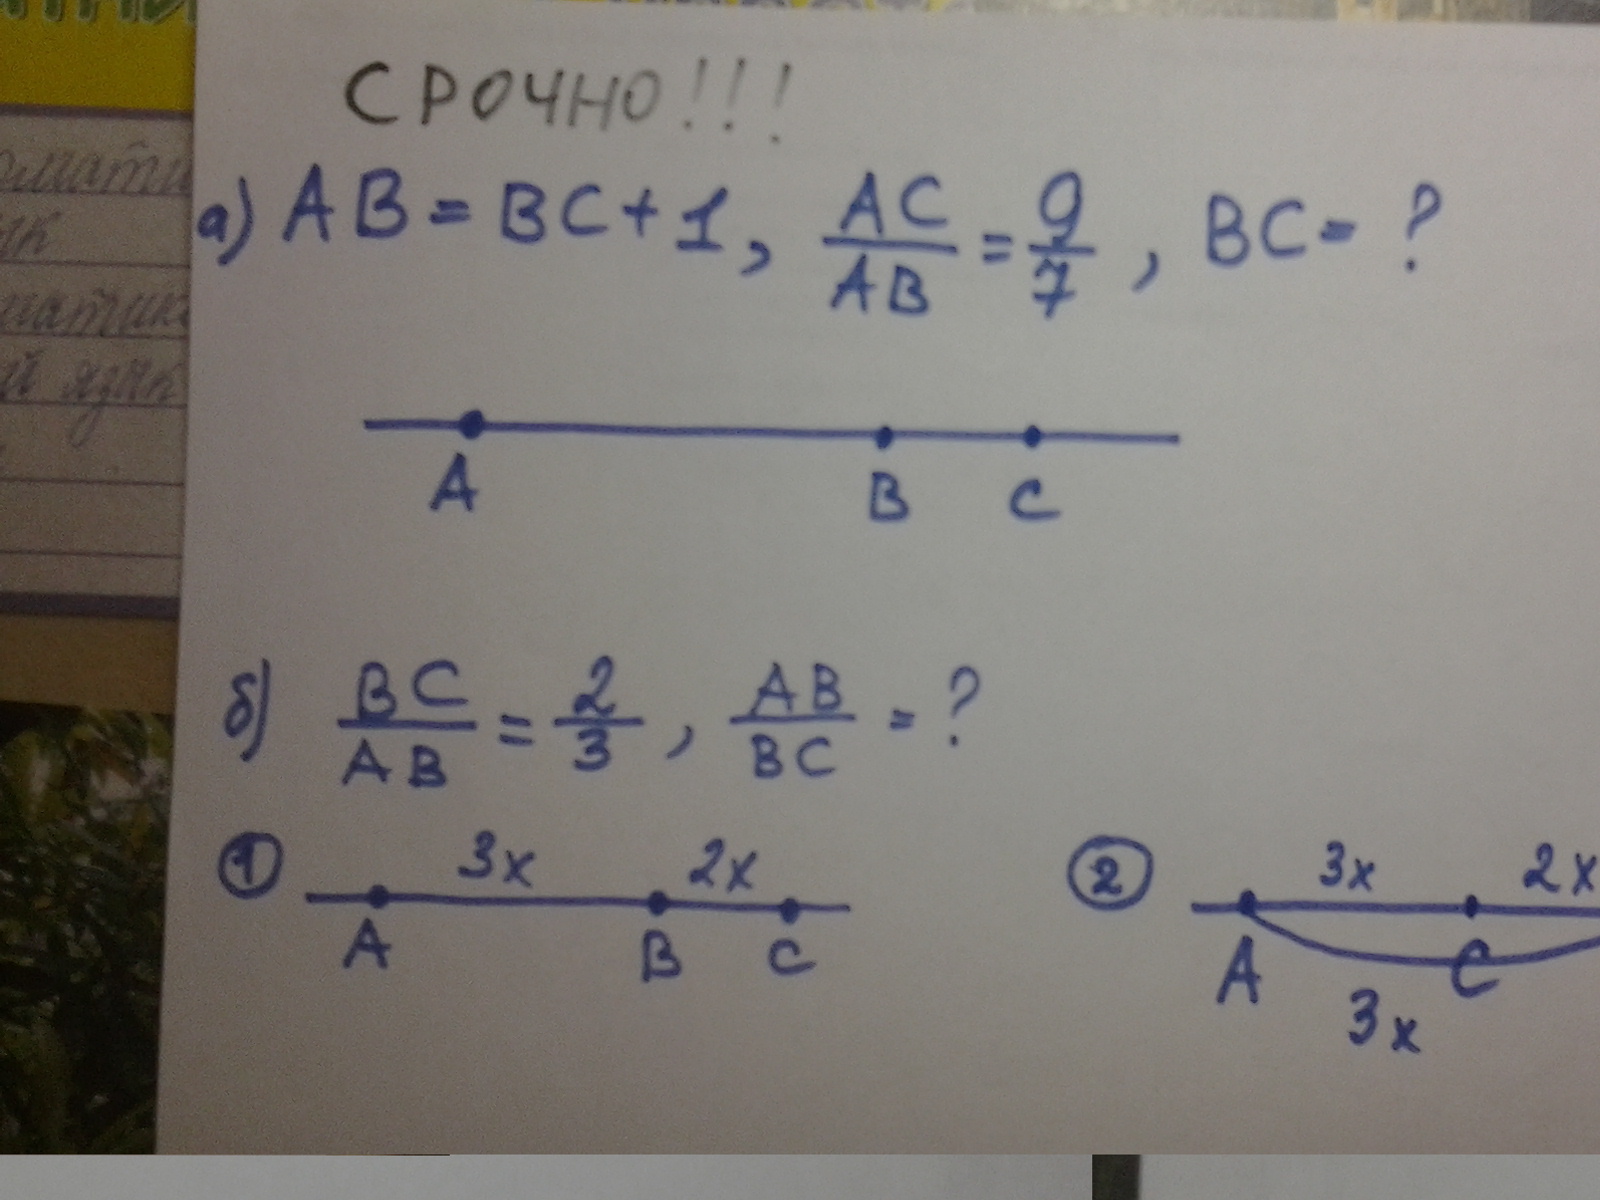 СРОЧНО!!!
а) AB = BC + 1, AC/AB = 9/7, BC = ?
A B C
б) BC/AB = 2/3, AB/BC = ?
① 3x 2x
A B C
② 3x 2x
A C
3x